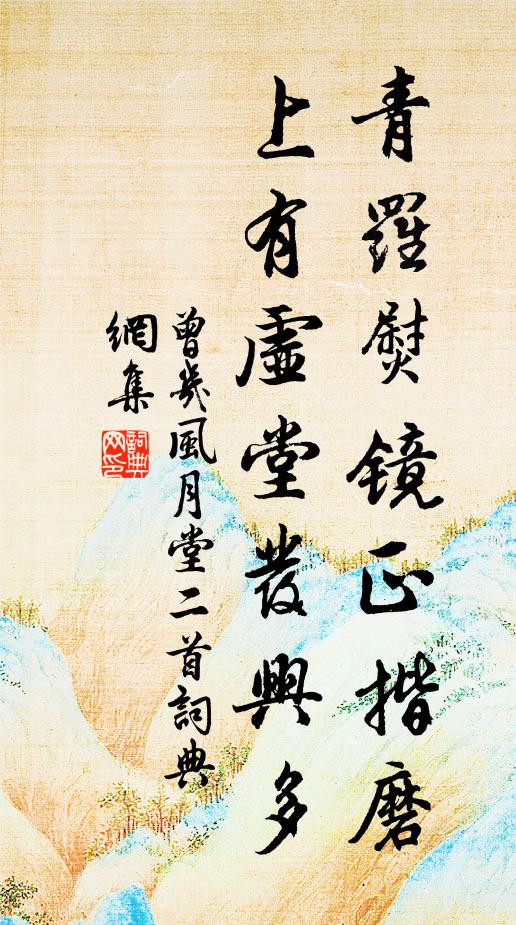 青羅熨鏡正揩磨
上有虛堂發興多
曾幾風月堂二首詞典
網集
詞典
網印